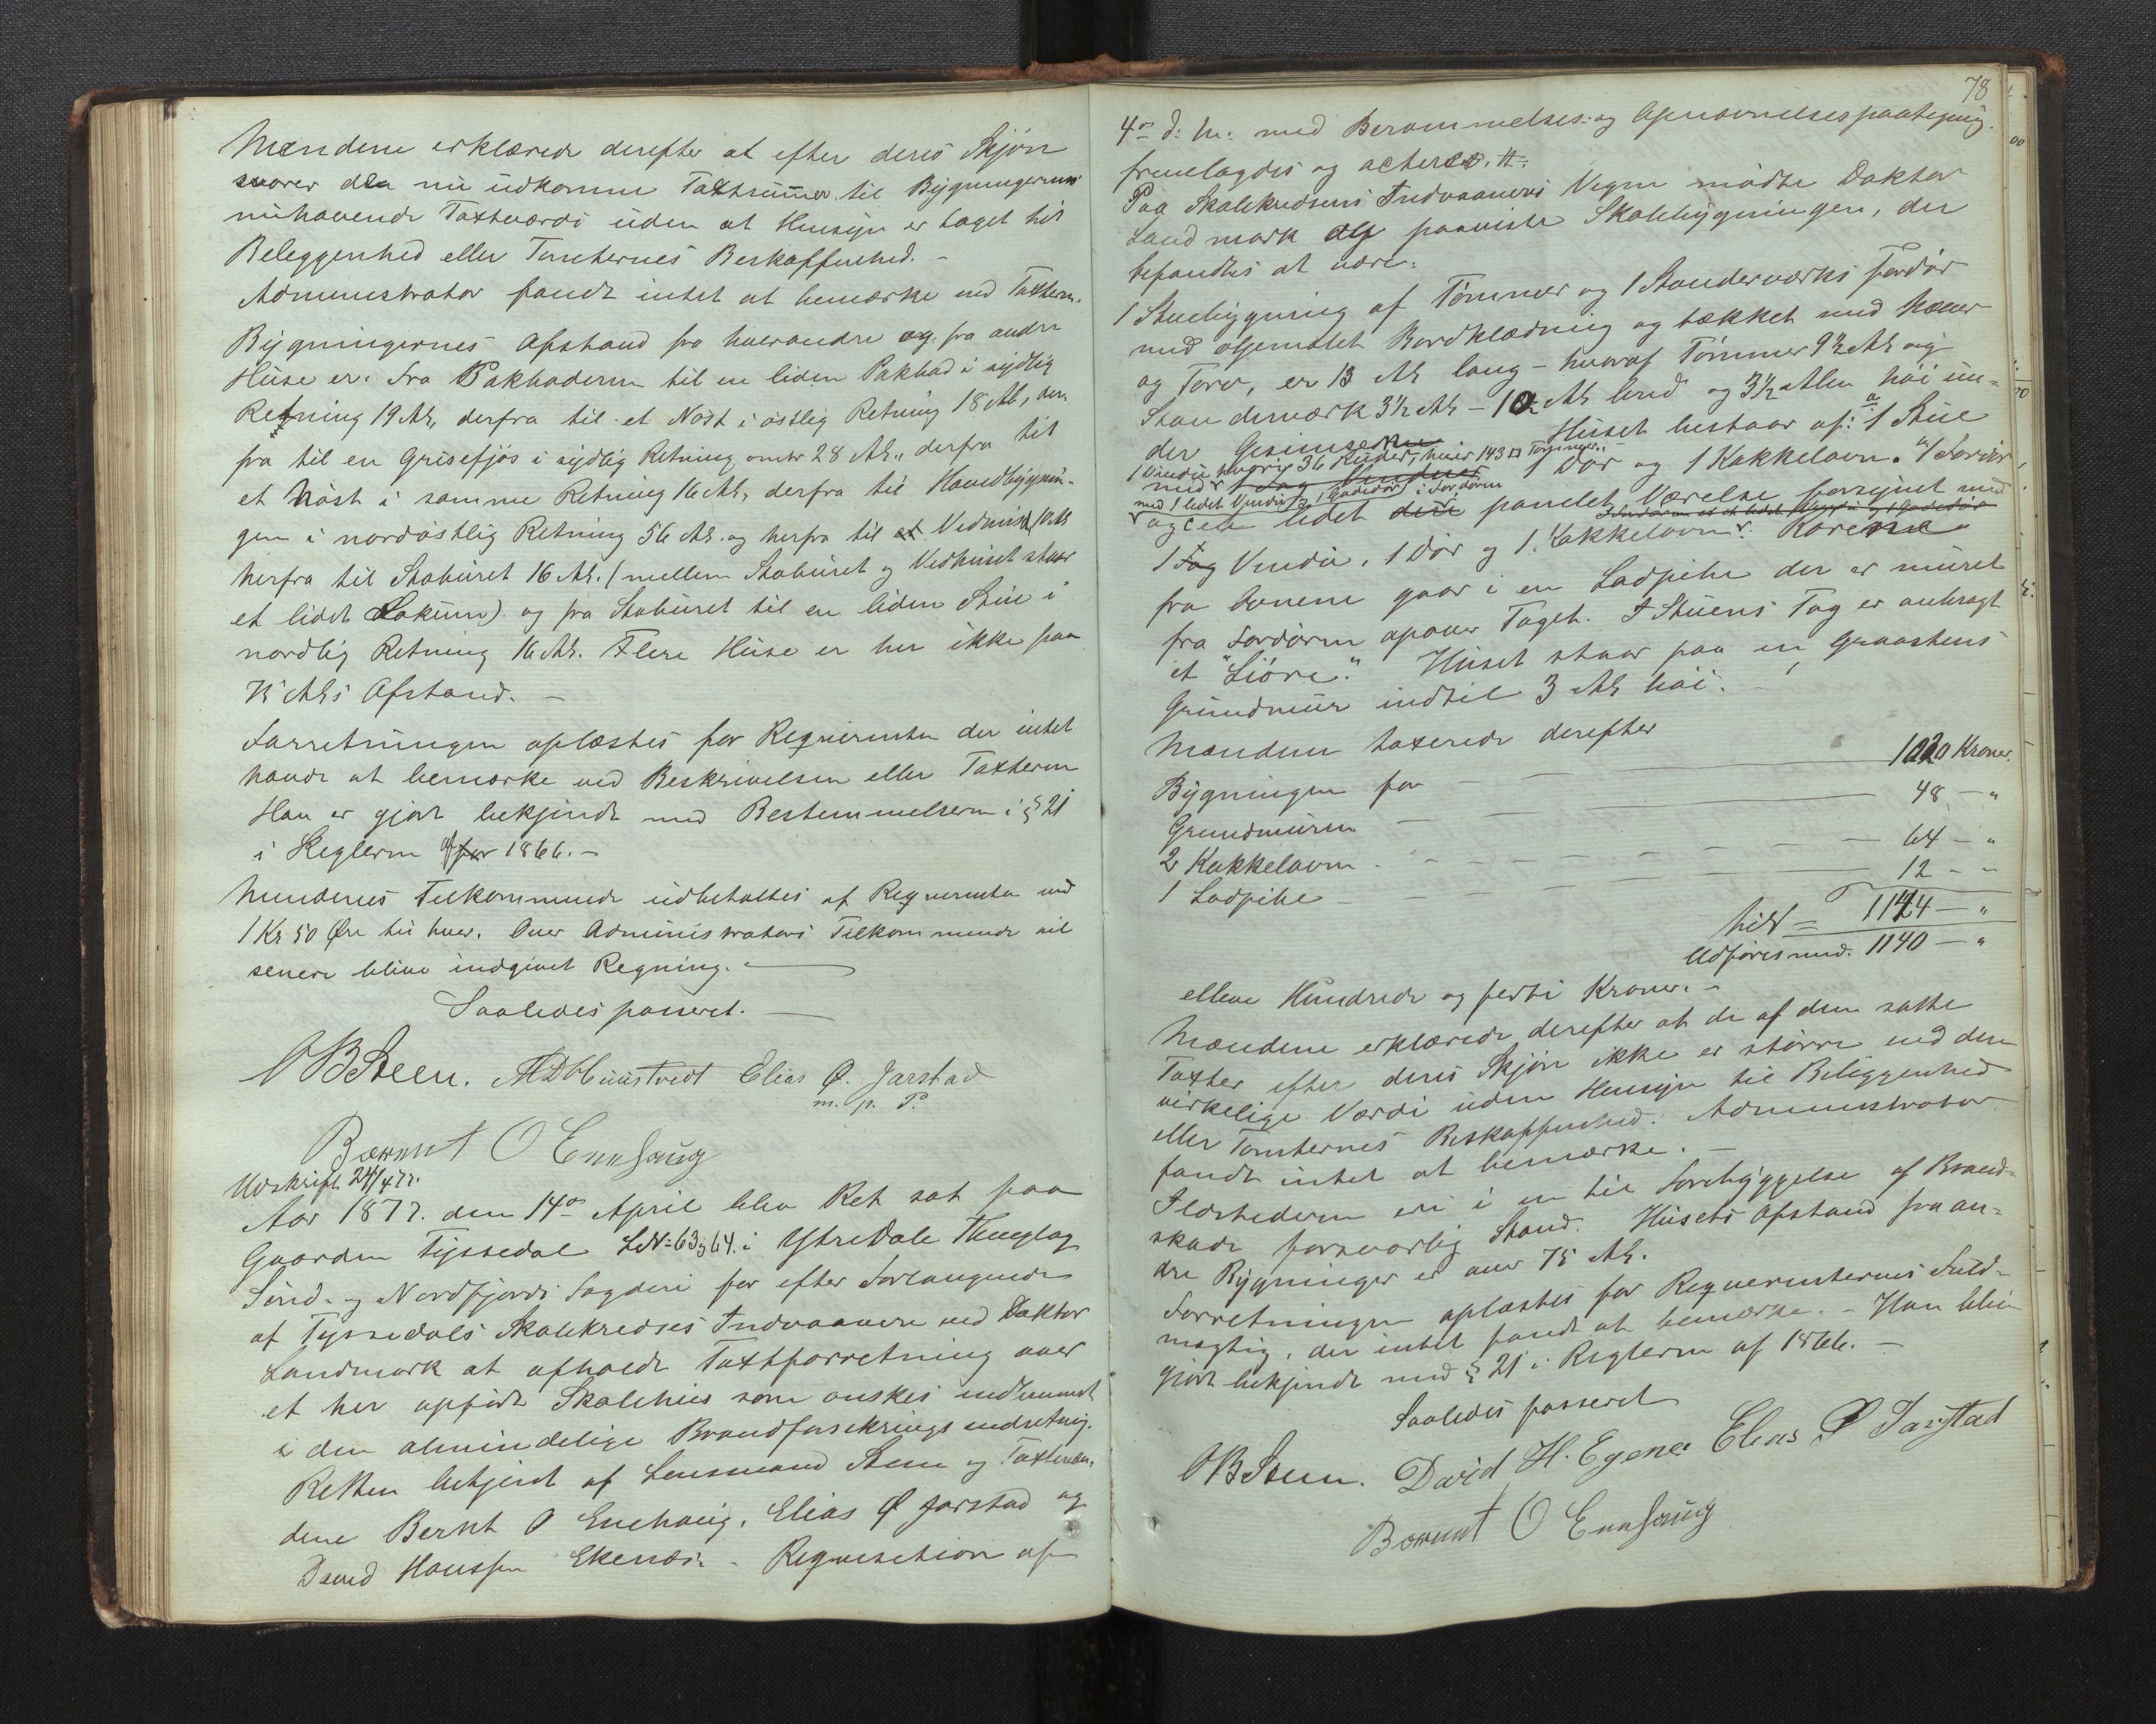 Mændene erklærede derefter at efter deres Skjøn
svarer den nu udkomne Taxtsummer til Bygningernes
nuhavende Taxtværdi uden at Hensyn er taget til
Beleggenhed eller Tomternes Beskaffenhed. -
Administrator fandt intet at bemærke ved Taxterne.
Bygningernes Afstand fra hverandre og fra andre
Huse er: fra Pakboderne til en liden Pakbod i sydlig
Retning 19 Al, derfra til et Nøst i østlig Retning 18 Al, der-
fra til en Grisefjøs i sydlig Retning omtr 28 Al., derfra til
et Nøst i samme Retning 16 Al, derfra til Hovedbygnin-
gen i nordøstlig Retning 56 Al. og herfra til et 10 Al
herfra til Stabùret 16 Al. (mellem Stabùret og Vedhuset staar
et lidet Lokum) og fra Stabùret til en liden Stùe i
nordlig Retning 16 Al. Flere Hùse er her ikke paa
75 Al's Afstand. -
Forretningen oplæstes for Reqvirenten der intet
havde at bemærke ved Beskrivelsen eller Taxterne
Han er gjort bekjendt med Bestemmelserne i § 21
i Reglerne af 1866. -
Mændenes Tilkommende udbetaltes af Reqvirenten med
1 Kr 50 Øre til hver. Over Administrators Tilkommende vil
senere blive indgivet Regning. -
Saaledes passeret. -
OBSteen. Elias Ø. Jarstad
m. p. P.
Bærnt O Ennhaùg
Udskrift 24/4 77.
Aar 1877. den 14de April blev Ret sat paa
Gaarden Tyssedal LN: 63 & 64. i Ytre Dale Thinglag
Sùnd- og Nordfjords Fogderi for efter Forlangende
af Tyssedals Skolekredses Indvaanere ved Doktor
Landmark at afholde Taxtforretning over
et her opført Skolehùs som ønskes indlemmet
i den almindelige Brandforsikringsindretnig.
Retten betjent af Lensmand Steen og Taxtmæn-
dene Bernt O Enehaug, Elias Ø Jarstad og
David Hanssen Ekenæs. - Reqvisition af
78
4de d: M: med Berammelses- og Opnævnelsespaategnig
fremlagdes og acteres. #:
Paa Skolekredsens Indvaaneres Vegne mødte Doktor
Landmark og paaviste Skolebygningen, der
befandtes at være:
1 Stuebygning af Tømmer og 1 Standerværks Fordør
med oljemalet Bordklædning og tækket med Næver
og Torv, er 13 Al lang - hvoraf Tømmer 9½ Al og
Standerværk 3½ Al - 10 Al bred og 3½ Alen høi ùn-
der Gesimserne Hùset bestaar af: a 1 Stùe
1 Vindù hvori 36 Rùder, hver 143 □ Tommer.
med 1 Fag Vindùer 1 Dør og 1 Kakkelovn.
med 1 lidet Vindù og 1 Gadedør i Fordøren
og et lidet panelet Værelse forsynet med
1 Fag Vindù, 1 Dør og 1 Kakkelovn. Rørene
fra Ovnene gaar i en Ladpibe der er mùret
fra Fordøren opover Taget. I Stùens Tag er anbragt
et "Liöre". Hùset staar paa en Graastens
Grùndmùr indtil 3 Al høi. -
Mændene taxerede derefter
Bygningen for — — 1020 Kroner.
Grundmùren — — 48 — "
2 Kakkelovne — — 64 — "
1 Ladpibe — — 12 — "
tils = 1144 — "
Udføres med. 1140 — "
elleve Hùndrede og førti Kroner. -
Mændene erklærede derefter at de af dem satte
Taxter efter deres Skjøn ikke er større end den
virkelige Værdi ùden Hensyn til Beliggenhed
eller Tomternes Beskaffenhed. Administrator
fandt intet at bemærke. -
Ildstederne ere i en til Forebyggelse af Brand-
skade forsvarlig Stand. Hùsets Afstand fra an-
dre Bygninger er over 75 Al.
Forretningen oplæstes for Reqvirenternes Fùld-
mægtig, der intet fandt at bemærke. - Han blev
gjort bekjendt med § 21 i Reglerne af 1866. -
Saaledes passeret
OBSteen. David H. Egenes Elias Ø Jarstad
Bærnt O Ennhaùg